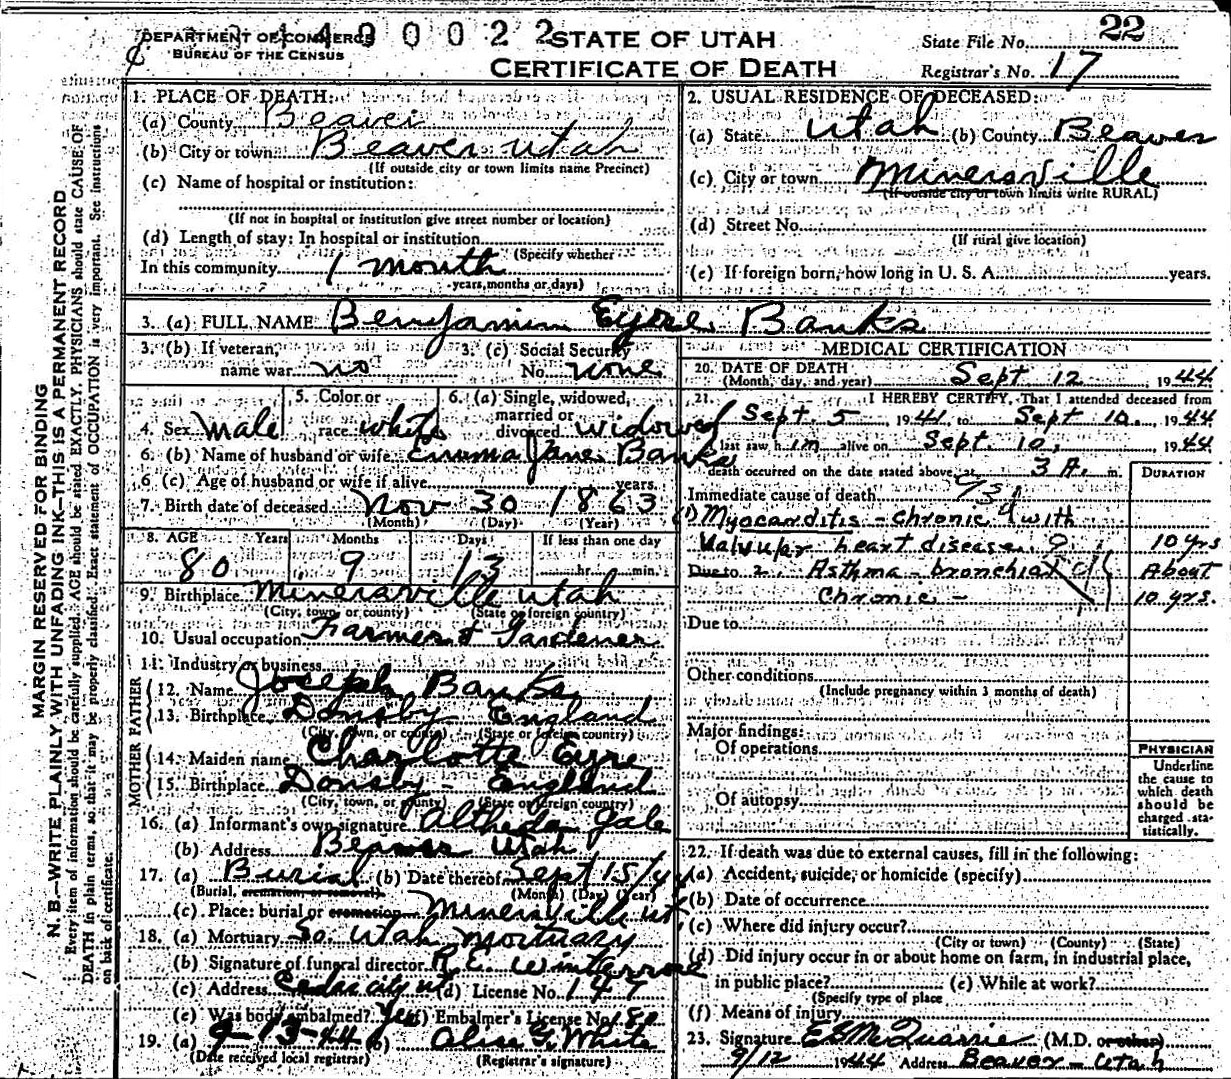 DEPARTMENT OF COMMERCE
BUREAU OF THE CENSUS
440022
STATE OF UTAH
CERTIFICATE OF DEATH
State File No. 22
Registrar's No. 17
MARGIN RESERVED FOR BINDING
N. B.—WRITE PLAINLY WITH UNFADING INK—THIS IS A PERMANENT RECORD
Every item of information should be carefully supplied. AGE should be stated EXACTLY. PHYSICIANS should state CAUSE OF
DEATH in plain terms, so that it may be properly classified. Exact statement of OCCUPATION is very important. See instructions
on back of certificate.
1. PLACE OF DEATH:
(a) County Beaver
(b) City or town Beaver Utah
(If outside city or town limits name Precinct)
(c) Name of hospital or institution:
(If not in hospital or institution give street number or location)
(d) Length of stay: In hospital or institution
(Specify whether
In this community 1 month
years, months or days)
2. USUAL RESIDENCE OF DECEASED:
(a) State Utah (b) County Beaver
(c) City or town Minersville
(If outside city or town limits write RURAL)
(d) Street No.
(If rural give location)
(e) If foreign born, how long in U. S. A. years.
3. (a) FULL NAME Benjamin Eyre Banks
3. (b) If veteran, name war no
3. (c) Social Security No. none
4. Sex Male
5. Color or race white
6. (a) Single, widowed, married or divorced widowed
6. (b) Name of husband or wife Emma Jane Banks
6 (c) Age of husband or wife if alive years.
7. Birth date of deceased Nov 30 1863
(Month) (Day) (Year)
8. AGE Years Months Days If less than one day
80 9 13 hr. min.
9. Birthplace Minersville Utah
(City, town, or county) (State or foreign country)
10. Usual occupation Farmer & Gardener
11. Industry or business
FATHER
12. Name Joseph Banks
13. Birthplace Donsby England
(City, town, or county) (State or foreign country)
MOTHER
14. Maiden name Charlotte Eyre
15. Birthplace Donsby - England
(City, town, or county) (State or foreign country)
16. (a) Informant's own signature Altheda Gale
(b) Address Beaver Utah
17. (a) Burial (b) Date thereof Sept 15/44
(Burial, cremation or removal) (Month) (Day) (Year)
(c) Place: burial or cremation Minersville Ut
18. (a) Mortuary So. Utah Mortuary
(b) Signature of funeral director R. E. Winterrose
(c) Address Cedar City Ut (d) License No. 147
(e) Was body embalmed? Yes (f) Embalmer's License No. 180
19. (a) 9-13-44 (b) Alice G. White
(Date received local registrar) (Registrar's signature)
MEDICAL CERTIFICATION
20. DATE OF DEATH
(Month, day, and year) Sept 12, 1944
21. I HEREBY CERTIFY, That I attended deceased from
Sept. 5 1941, to Sept 10., 1944
I last saw him alive on Sept. 10, 1944
Death occurred on the date stated above at 3 A. m.
DURATION
Immediate cause of death
(1) Myocarditis - chronic (with
Valvular heart disease. 10 yrs
Due to 2. Asthma - bronchial About
Chronic - 10 yrs.
Due to
Other conditions
(Include pregnancy within 3 months of death)
Major findings:
Of operations
Of autopsy
PHYSICIAN
Underline
the cause to
which death
should be
charged sta-
tistically.
22. If death was due to external causes, fill in the following:
(a) Accident, suicide, or homicide (specify)
(b) Date of occurrence
(c) Where did injury occur?
(City or town) (County) (State)
(d) Did injury occur in or about home on farm, in industrial place,
in public place? (e) While at work?
(Specify type of place
(f) Means of injury
23. Signature E S McQuarrie (M.D. or other)
9/12 1944 Address Beaver - Utah